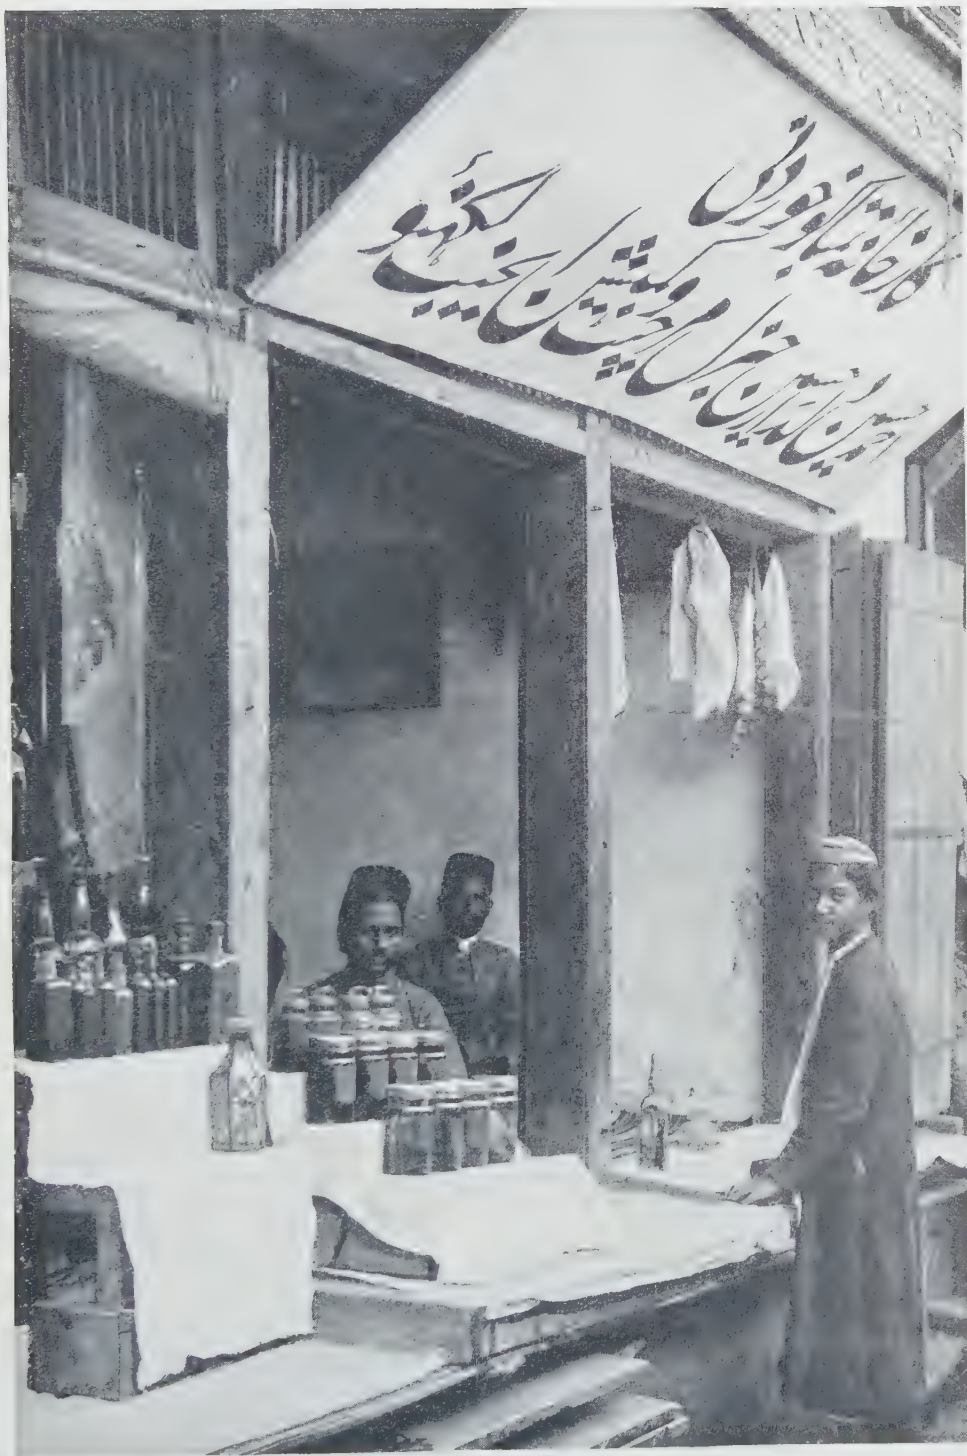 کارخانہ تمباکو خوردنی
احمد حسین دلدار حسین جنرل مرچنٹ و کمیشن ایجنٹ لکھنؤ